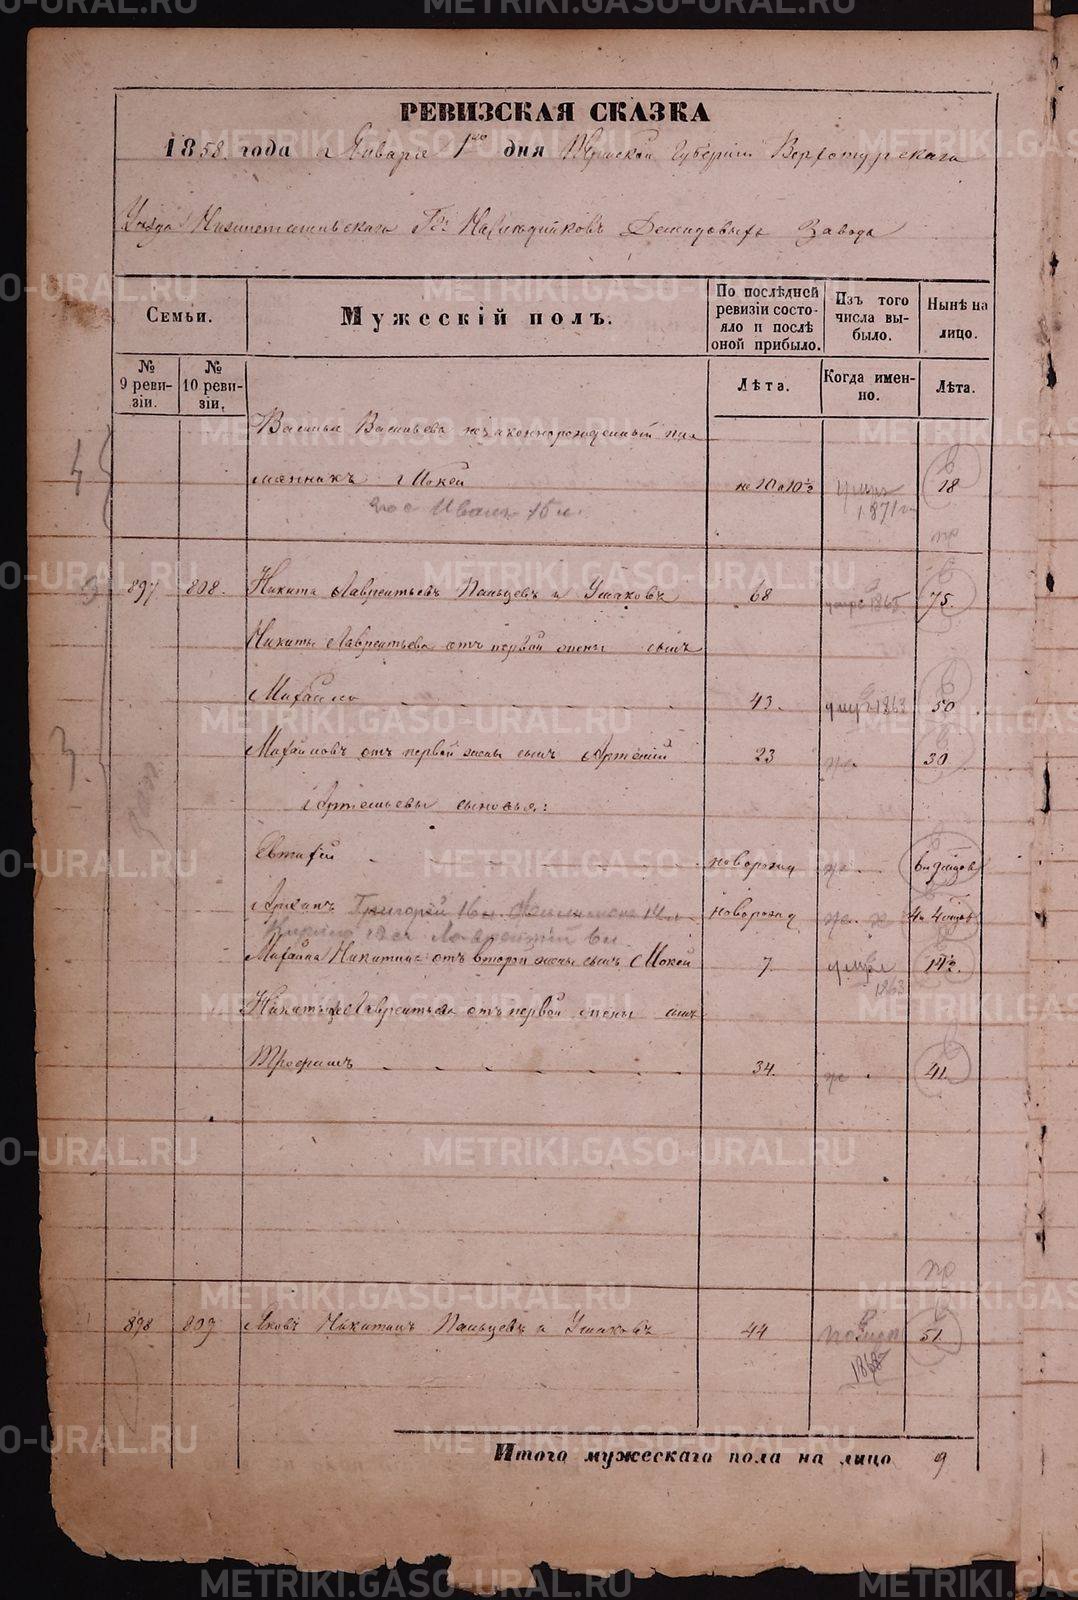 РЕВИЗСКАЯ СКАЗКА
1858 года Января 1го дня Пермской Губернии Верхотурскаго
Уезда Нижнетагильскаго Гг. Наследниковъ Демидовыхъ Завода
Семьи.
Мужескій полъ.
По послѣдней ревизіи состояло и послѣ оной прибыло.
Изъ того числа выбыло.
Нынѣ на лицо.
№ 9 ревизіи.
№ 10 ревизіи.
Лѣта.
Когда именно.
Лѣта.
Василья Васильева незаконнорожденный пле
мянникъ Мокей 10 1/2 умер 1871 18
Иванъ 15
897 808. Никита Лаврентьевъ Пальцевъ и Ушаковъ 68 умре 1865 75.
Никиты Лаврентьева отъ первой жены сынъ
Михайло 43. умер 1863 50
Михайловъ отъ первой жены сынъ Артемій 23 30
Артемьевы сыновья:
Евтифей новорожд
Архипъ Григорій 16 14 новорожд
Лаврентій
Михайла Никитина отъ второй жены сынъ Мокей 7 умер 1863 14 1/2.
Никиты Лаврентьева отъ первой жены сынъ
Трофимъ 34. 41.
898 809 Яковъ Никитинъ Пальцевъ и Ушаковъ 44 1868 51
Итого мужескаго пола на лицо 9
METRIKI.GASO-URAL.RU